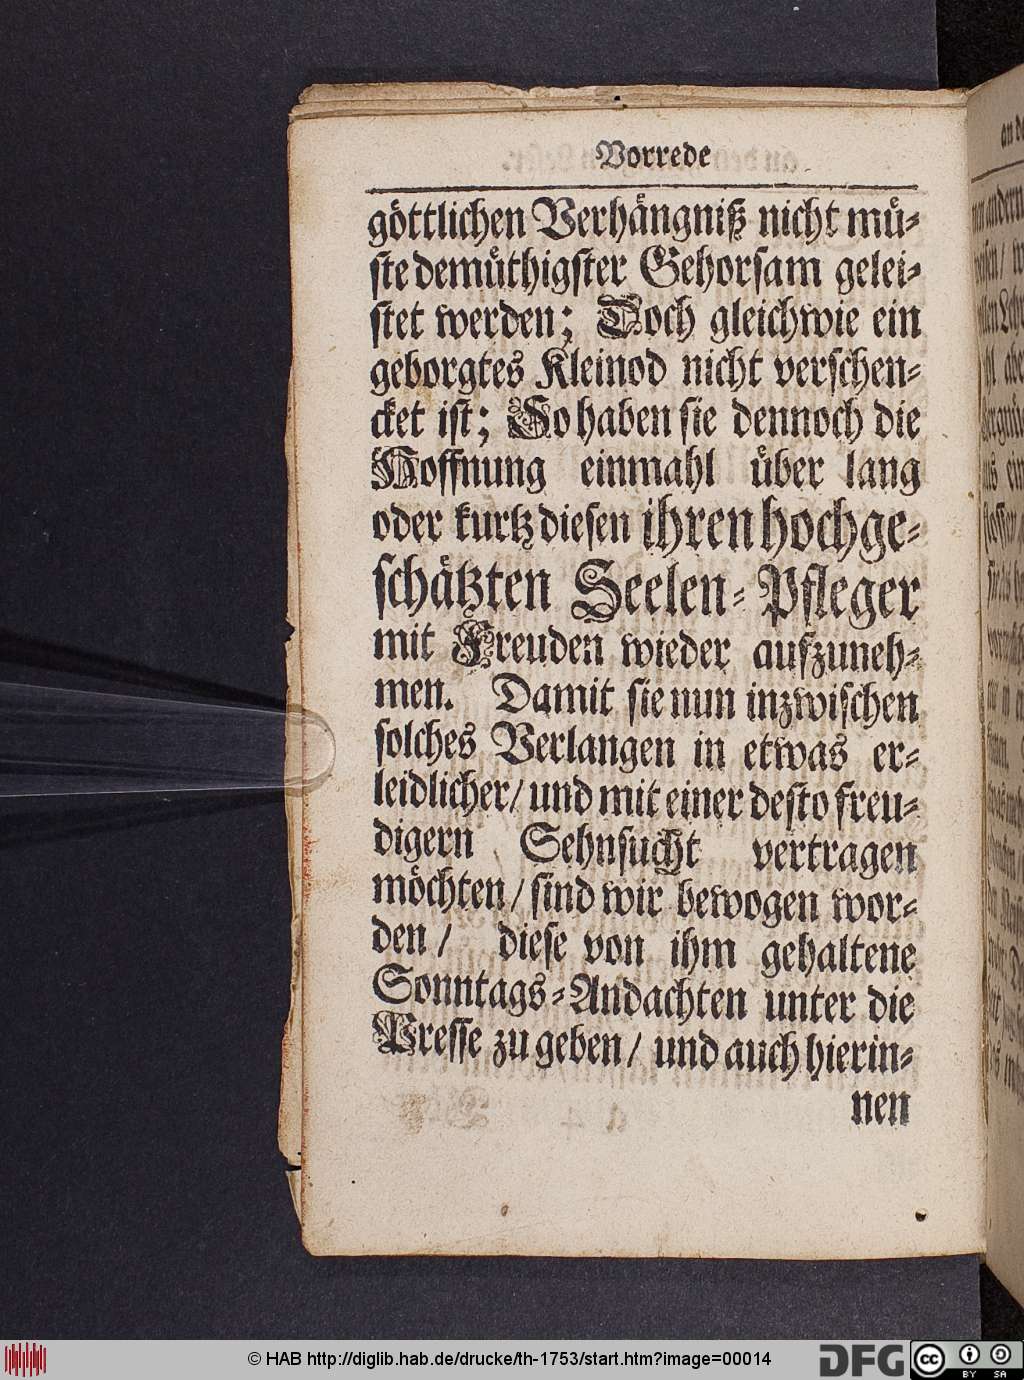 Vorrede
göttlichen Verhängniß nicht mü-
ste demüthigster Gehorsam gelei-
stet werden; Doch gleichwie ein
geborgtes Kleinod nicht verschen-
cket ist; So haben sie dennoch die
Hoffnung einmahl über lang
oder kurtz diesen ihren hochge-
schätzten Seelen-Pfleger
mit Freuden wieder aufzuneh-
men. Damit sie nun inzwischen
solches Verlangen in etwas er-
leidlicher/ und mit einer desto freu-
digern Sehnsucht vertragen
möchten/ sind wir bewogen wor-
den/ diese von ihm gehaltene
Sonntags-Andachten unter die
Presse zu geben/ und auch hierin-
nen
© HAB http://diglib.hab.de/drucke/th-1753/start.htm?image=00014
DFG
cc BY SA